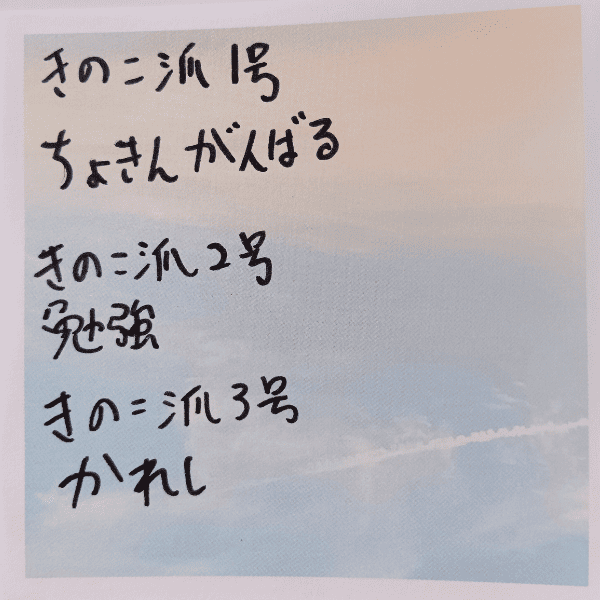 きのこ派1号
ちょきんがんばる
きのこ派2号
勉強
きのこ派3号
かれし